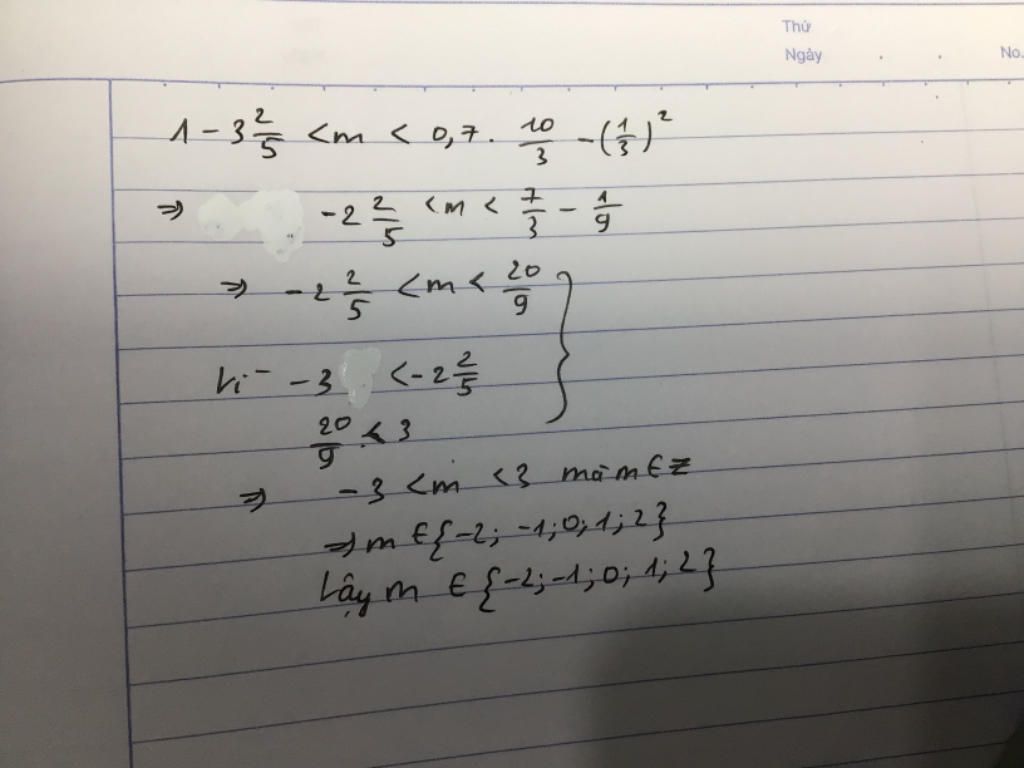 Thứ
Ngày . . No.
1 - 3 2/5 < m < 0,7 . 10/3 - (1/3)²
⇒ -2 2/5 < m < 7/3 - 1/9
⇒ -2 2/5 < m < 20/9 }
Vì -3 < -2 2/5
20/9 < 3
⇒ -3 < m < 3 mà m ∈ Z
⇒ m ∈ {-2; -1; 0; 1; 2}
Vậy m ∈ {-2; -1; 0; 1; 2}